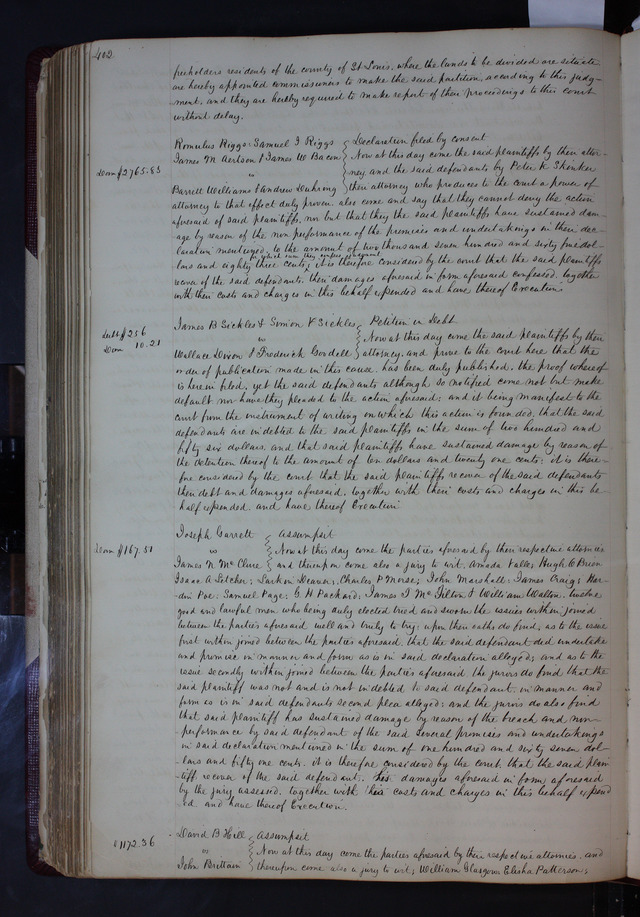 402
freeholders residents of the county of St Louis, where the lands to be divided are situate
are hereby appointed commissioners to make the said partition, according to this judg-
ment, and they are hereby required to make report of their proceedings to this court
without delay.
Romulus Riggs, Samuel J Riggs
James M Aertson & James W Bacon
vs
Barrett Williams & Andrew
Declaration filed by consent
Now at this day come the said plaintiffs by their attor-
Dam $2765.83
ney and the said defendants by Peter K
their attorney who produces to the court a power of
attorney to that effect duly proven. also come and say that they cannot deny the action
aforesaid of said plaintiffs, nor but that they the said plaintiffs have sustained dam-
age by reason of the non performance of the promises and undertakings in their dec-
laration mentioned, to the amount of two thousand and seven hundred and sixty five dol-
for which sum they confess judgment
lars and eighty three cents, it is therefore considered by the court that the said plaintiffs
recover of the said defendants, their damages aforesaid in form aforesaid confessed, together
with their costs and charges in this behalf expended and have thereof Execution
James B Sickles & Simon V Sickles
vs
Wallace Dixon & Frederick Gordell
Petition in Debt
Debt $256
Dam 10.21
Now at this day come the said plaintiffs by their
attorney, and prove to the court here that the
order of publication made in this cause, has been duly published, the proof whereof
is herein filed, yet the said defendants although so notified come not but make
default nor have they pleaded to the action aforesaid: and it being manifest to the
court from the instrument of writing on which this action is founded, that the said
defendants are indebted to the said plaintiffs in the sum of two hundred and
fifty six dollars, and that said plaintiffs have sustained damage by reason of
the detention thereof to the amount of ten dollars and twenty one cents: it is there-
fore considered by the court that the said plaintiffs recover of the said defendants
their debt and damages aforesaid, together with their costs and charges in this be-
half expended, and have thereof Execution
Joseph Garrett
vs
James N McClure
Assumpsit
Dam $167.51
Now at this day come the parties aforesaid by their respective attornies
and thereupon come also a jury to wit, Hugh O Brien
Isaac A Letcher, Larkin Deaver, Charles P Morse, John Marshall, James Craig, Har-
din Poe, Samuel Page, G H Packard, James J McFilton & William Walton, twelve
good and lawful men who being duly elected tried and sworn the issues within joined
between the parties aforesaid well and truly to try: upon their oaths do find, as to the issue
first within joined between the parties aforesaid, that the said defendant did undertake
and promise in manner and form as is in said declaration alleged; and as to the
issue secondly within joined between the parties aforesaid the jurors do find that the
said plaintiff was not and is not indebted to said defendant, in manner and
form as is in said defendants second plea alleged: and the jurors do also find
that said plaintiff has sustained damage by reason of the breach and non-
performance by said defendant of the said several promises and undertakings
in said declaration mentioned in the sum of one hundred and sixty seven dol-
lars and fifty one cents. it is therefore considered by the court that the said plain
tiff recover of the said defendant, his damages aforesaid in form aforesaid
by the jury assessed, together with his costs and charges in this behalf expend
ed and have thereof Execution.
David B Hill
vs
John Brittain
Assumpsit
$1172.36
Now at this day come the parties aforesaid by their respective attornies, and
thereupon come also a jury to wit, William Glasgow Elisha Patterson,